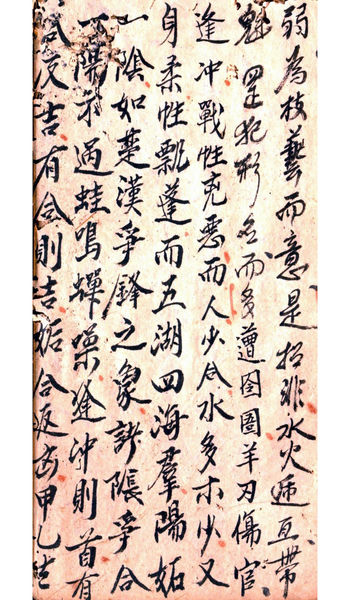 弱為枝藝而意是招非水火遞互帶
魁罡犯形名而多遭囹圄羊刃傷官
逢冲戰性克惡而人少合水多木少又
身柔性飄蓬而五湖四海羣陽妬
一陰如楚漢爭鋒之象爭合
一陽過蛙鳴蟬噪逢冲則首有
合反吉有合則吉妬合返凶甲乙生